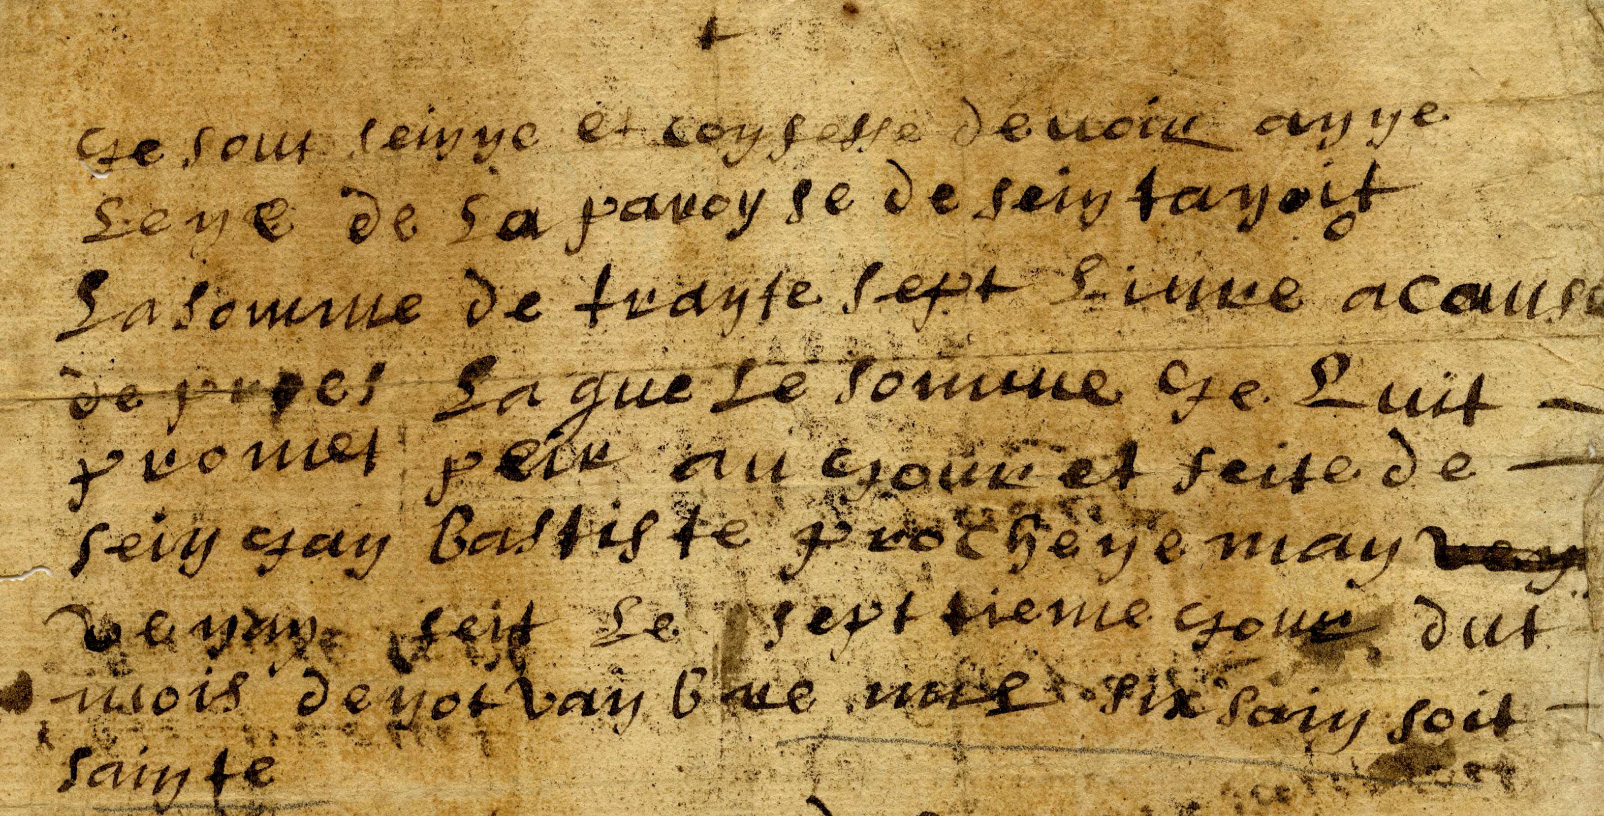 Je sout seinne et confesse devoir anne
Leye de La paroyse de seintanoit
La somme de trante sept Livre a cause
de pres La que Le somme Je Luit
promet peir au Jour et feite de
sein Jan bastiste procheyemay
venan feit Le septtieme Jour dut
mois de notvanbre mil six sain soit
sainte